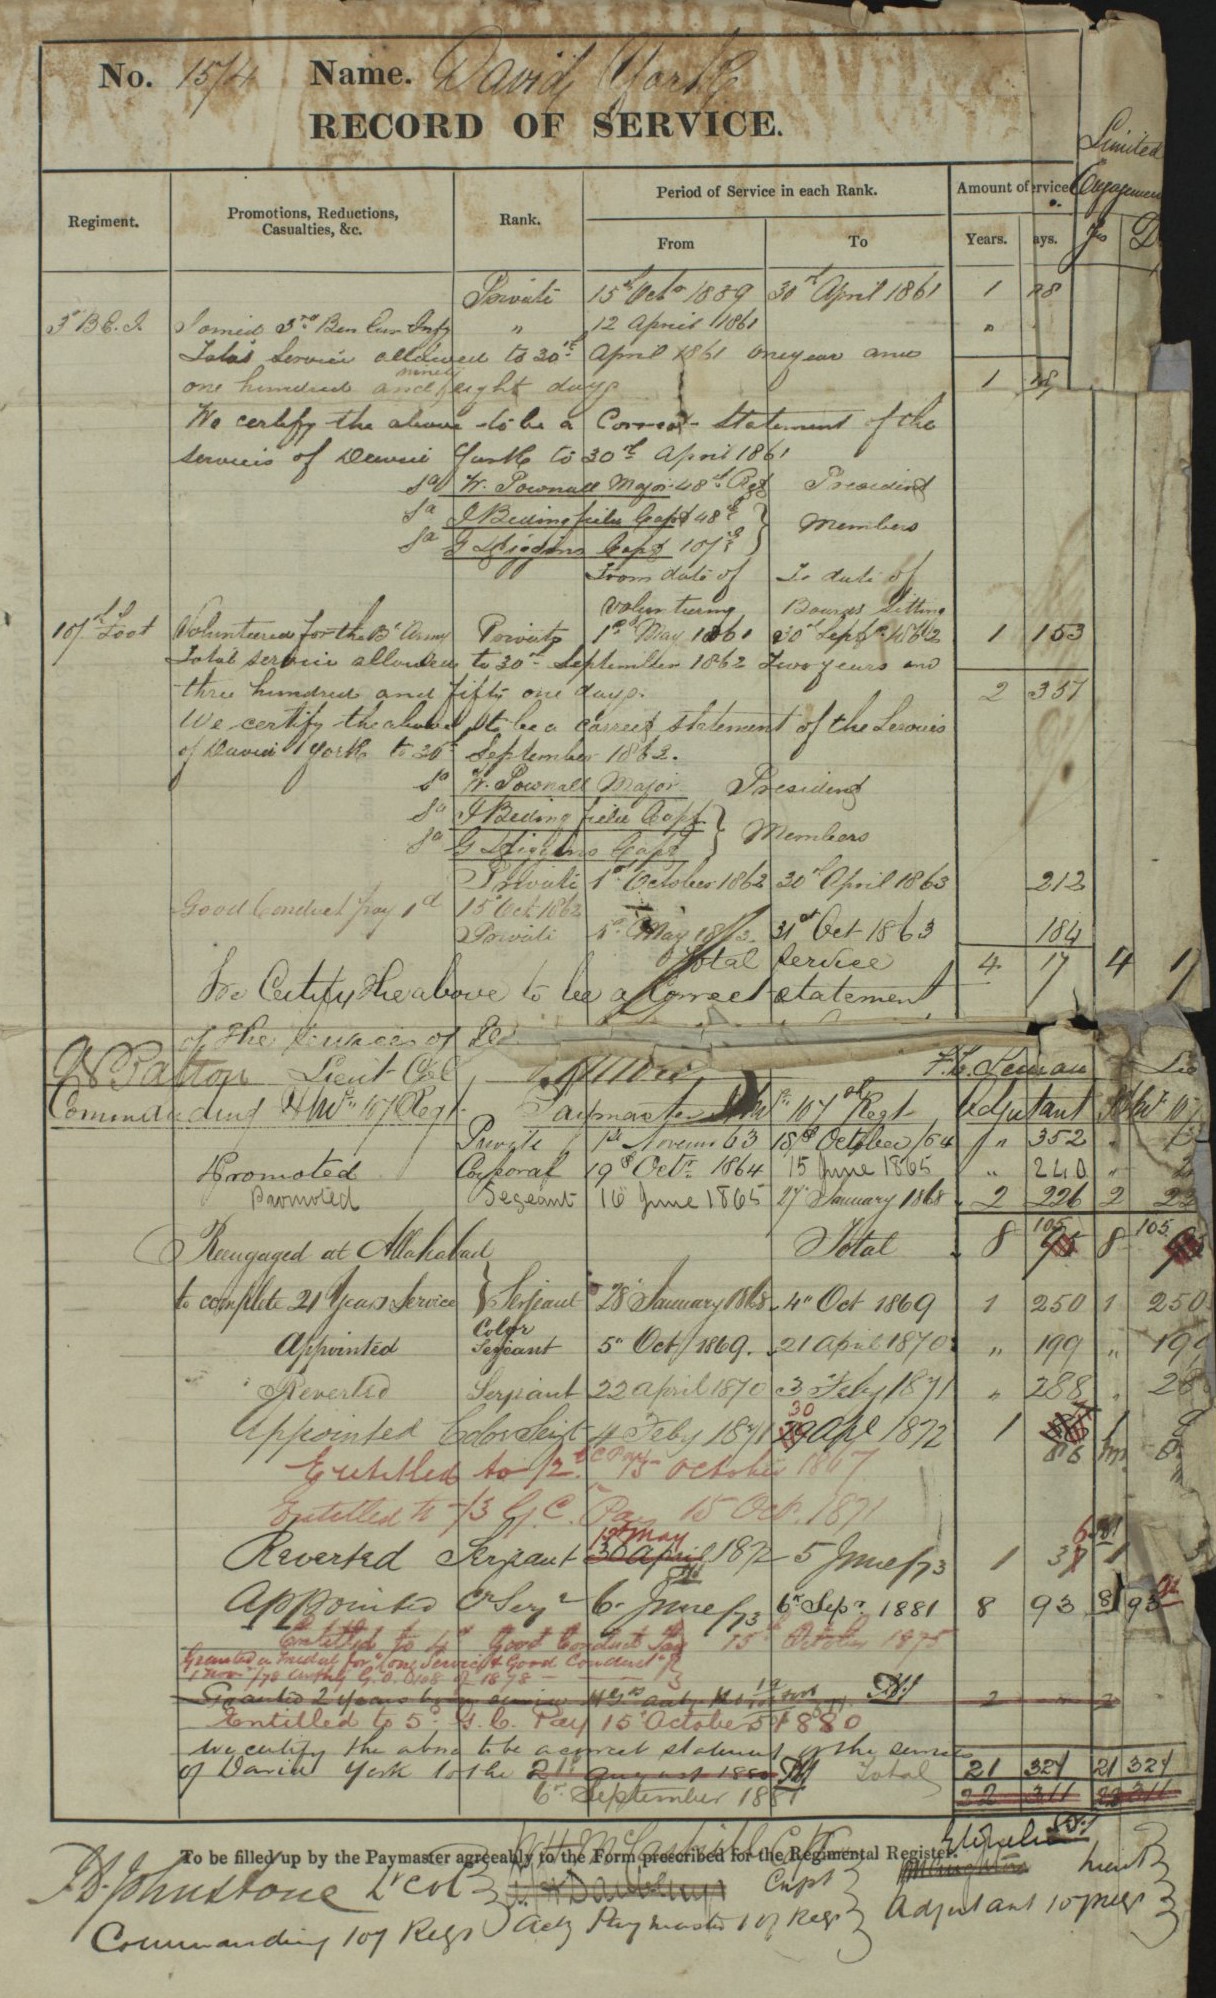 No. 1514 Name. David York
RECORD OF SERVICE.
Limited
Engagement
Regiment. Promotions, Reductions, Casualties, &c. Rank. Period of Service in each Rank. Amount of ervice
From To Years. ays. Ys D
Private 15th Octr 1859 30th April 1861 1
3d B E. I. Joined 3rd Ben Eur Infy " 12 April 1861 "
Total Service allowed to 30th April 1861 one year and
one hundred and ninety eight days 1
We certify the above to be a Correct Statement of the
services of David York to 30th April 1861
Sd W. Pownall Major 48th Regt President
Sd J Bedingfield Capt 48th } Members
Sd G Higgins Capt 107th
From date of To date of
Volunteering Board's Sitting
107th Foot Volunteered for the Bh Army Private 1st May 1861 30th Septr 1862 1 153
Total service allowed to 30th September 1862 Two years and
three hundred and fifty one days. 2 351
We certify the above to be a correct statement of the Services
of David York to 30th September 1862.
Sd W. Pownall Major President
Sd J Bedingfield Capt } Members
Sd G Higgins Capt
Private 1st October 1862 30th April 1863 212
Good Conduct pay 1d 15 Oct 1862
Private 1st May 1863 31st Oct 1863 184
Total Service 4 17 4 17
We Certify the above to be a Correct statement
of the services of
Patton Lieut Col
Commanding 107 Regt Paymaster 107th Regt Adjutant 107
Private 1st Novemr 63 18th October /64 " 352 "
Promoted Corporal 19th Octr 1864 15 June 1865 " 240 "
Promoted Sergeant 16 June 1865 27th January 1868 2 226 2
Reengaged at Allahabad Total 8 105 8 105
to complete 21 Years Service } Serjeant 28 January 1868 4th Oct 1869 1 250 1 250
Appointed Color Serjeant 5th Oct /1869. 21 April 1870 " 199 " 199
Reverted Serjeant 22 April 1870 3 Feby 1871 " 288 "
Appointed Color Serjt 4 Feby 1871 30 Apl 1872 1 86
Entitled to /2d G C Pay 15 October 1867
Entitled to -/3 G. C. Pay 15 Oct. 1871
Reverted Serjeant 30 April 1872 5 June /73 1
Appointed Cr Sergt 6th June /73 6th Sepr 1881 8 93 8 93
Entitled to 4th Good Conduct Pay 15th October 1875
Granted a Medal for "Long Service & Good Conduct"
Granted 2 years
Entitled to 5th G. C. Pay 15 October 1880
We certify the above to be a correct statement of the services
of David York to the 21st August 1880 Total 21 324 21 324
6th September 1881 22 311 22 311
To be filled up by the Paymaster agreeably to the Form prescribed for the Regimental Register.
Johnstone Lt Col Capt
Commanding 107 Regt Actg Paymaster 107 Regt Adjutant 107 Regt